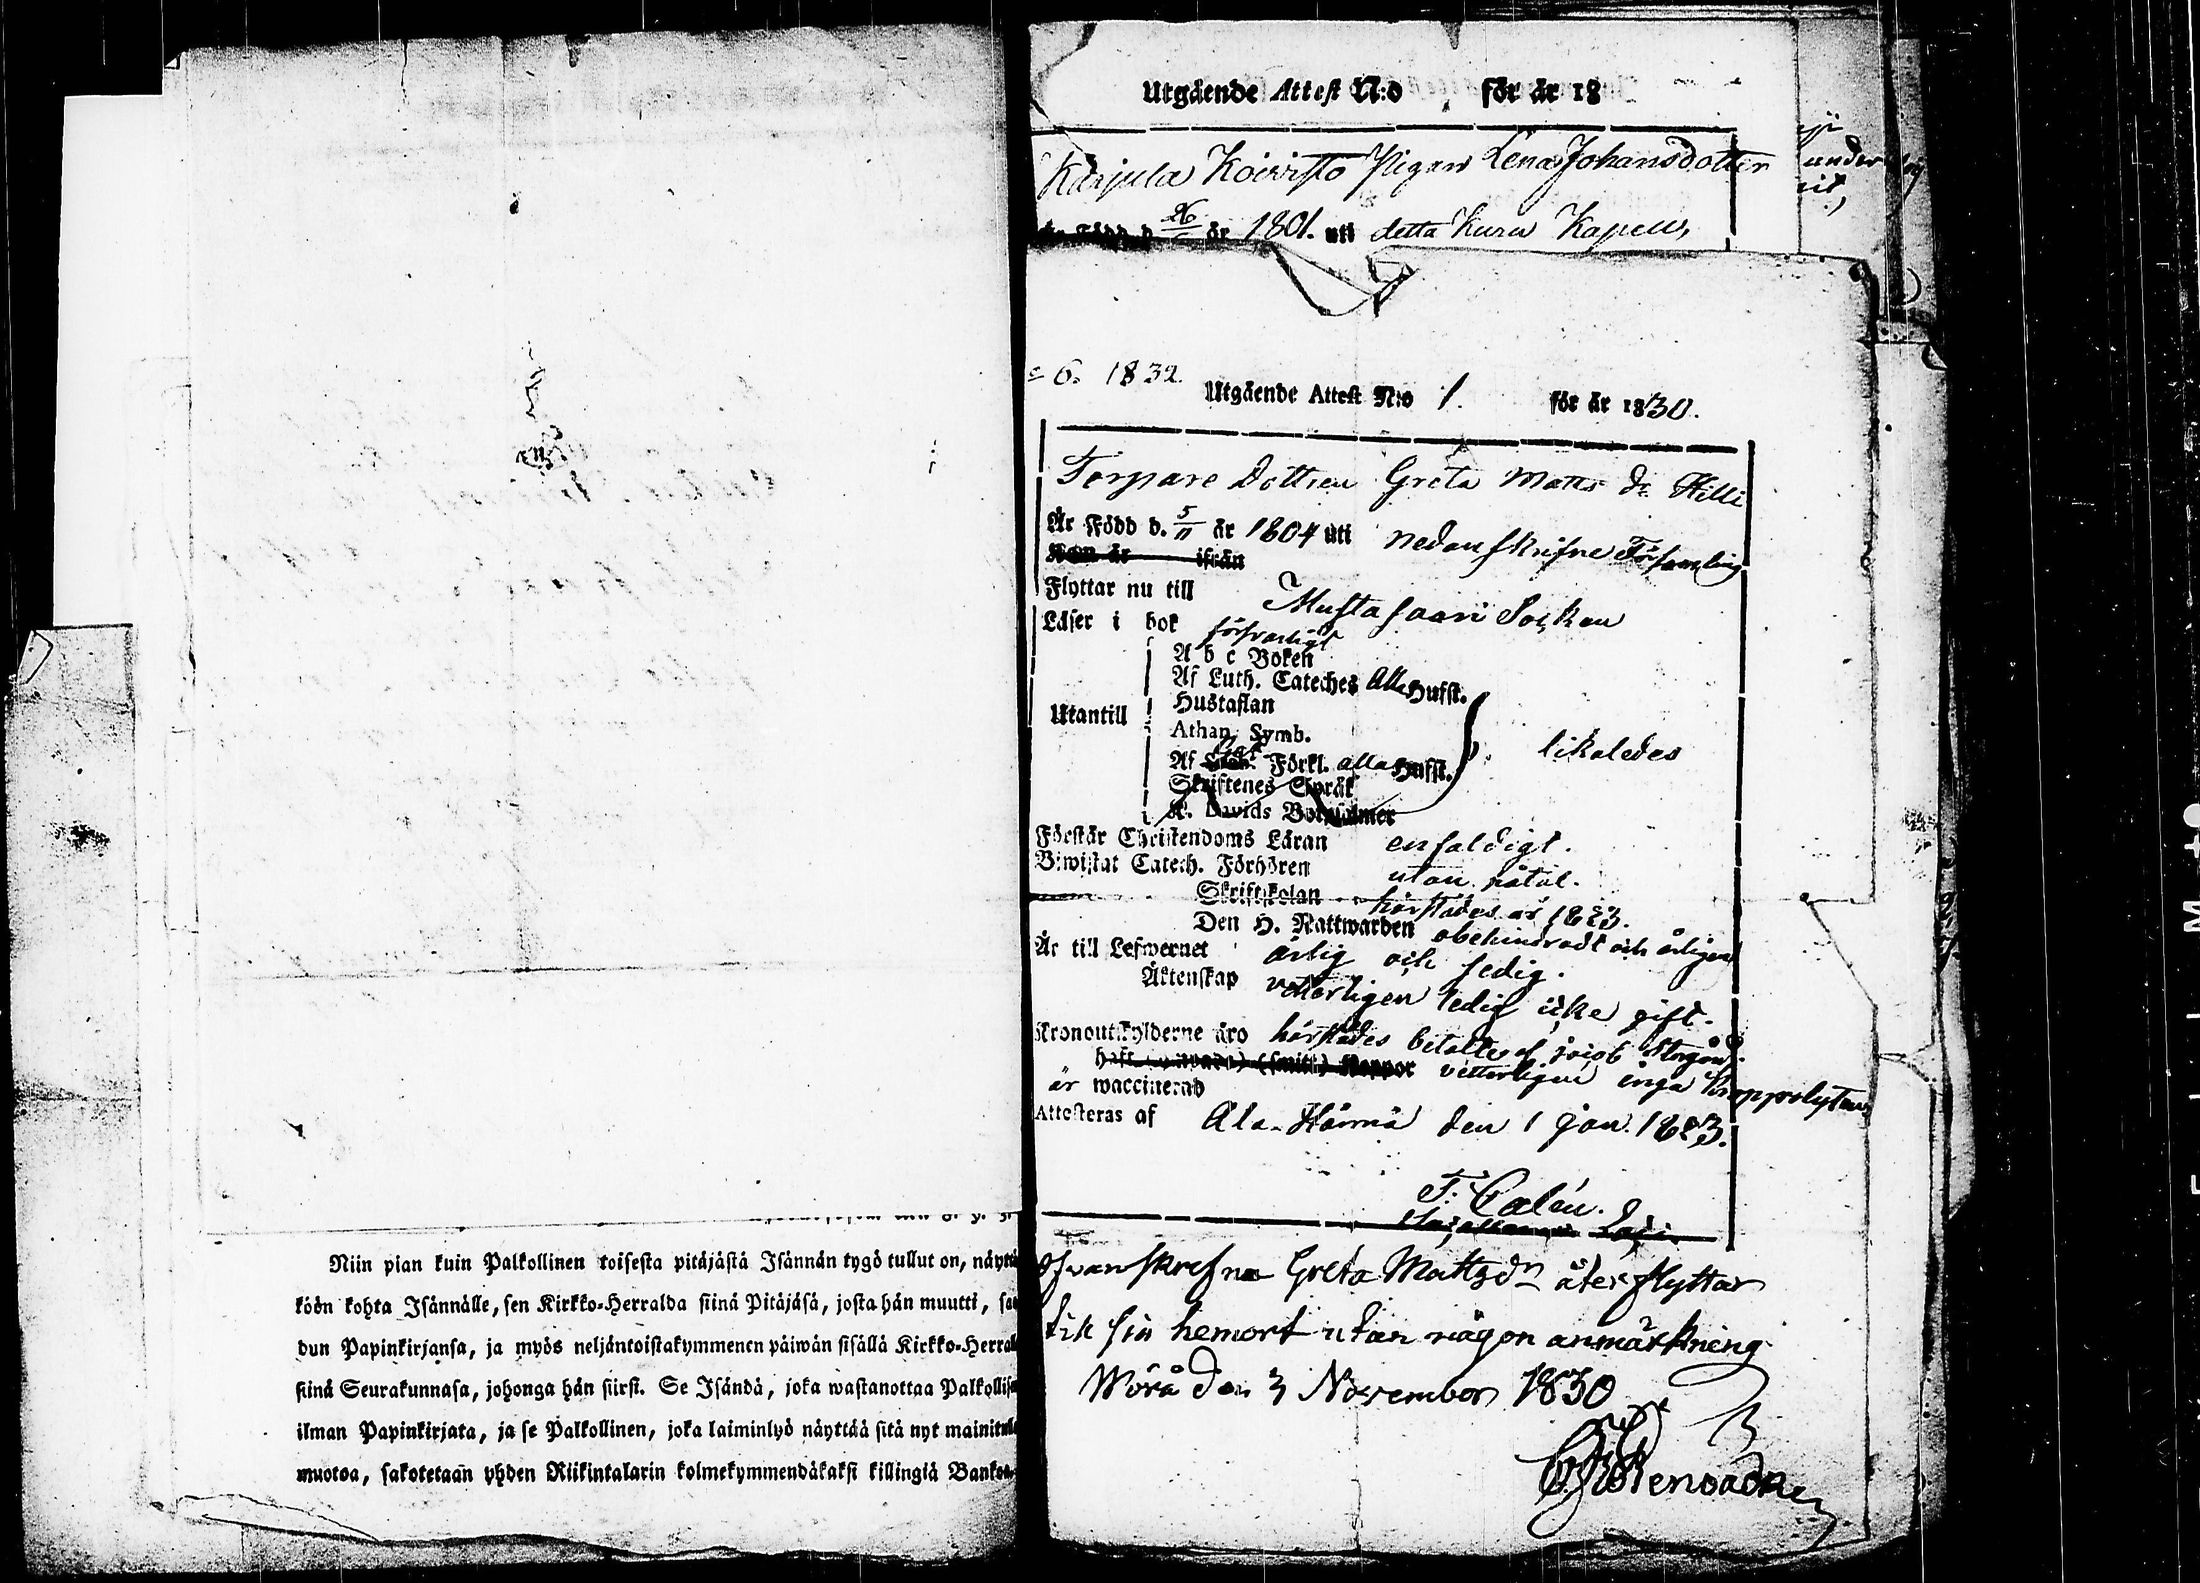 Niin pian kuin Palkollinen toisesta pitäjästä Isännän tygö tullut on, näyttä
köön kohta Isännälle, sen Kirkko-Herralda siinä Pitäjäsä, josta hän muutti, saa
dun Papinkirjansa, ja myös neljäntoistakymmenen päiwän sisällä Kirkko-Herral
siinä Seurakunnasa, johonga hän siirst. Se Isändä, joka wastanottaa Palkollise
ilman Papinkirjata, ja se Palkollinen, joka laiminlyö näyttää sitä nyt mainitulla
muotoa, sakotetaan yhden Riikintalarin kolmekymmendäkaksi killingiä Banko
Utgående Attest N:o för år 18
Karjula Koivisto Pigan Lena Johansdotter
Född d. 26 år 1801. uti detta Kuru Kapell,
6. 1832.
Utgående Attest N:o 1. för år 1830.
Torpare Dottren Greta Matts dr Hilli
Är Född d. 5/11 år 1804 uti nedanskrifne Församling
Kom år ifrån
Flyttar nu till Mustasaari Socken
Läser i bok försvarligt
A b c Boken
Af Luth. Cateches Alla Hufst.
Hustaflan
Utantill
Athan. Symb.
likaledes
Af Förkl. alla Hufst.
Skriftenes Språk
K. Davids Botpsalmer
Förstår Christendoms Läran enfaldigt.
Biwistat Catech. Förhören utan påtal.
Skriftskolan härstädes år 1823.
Den H. Nattwarden obehindradt och årligen
Är till Lefwernet ärlig och sedig.
Äktenskap vetterligen ledig icke gift.
Kronoutskylderne äro härstädes betalte
haft Koppor vetterligen inga
är waccinerad
Attesteras af Ala-Härmä den 1 Jan. 1823.
F. Calén.
Ofvanskrefna Greta Mattsdn återflyttar
till sin hemort utan någon anmärkning
Wörå den 3 November 1830